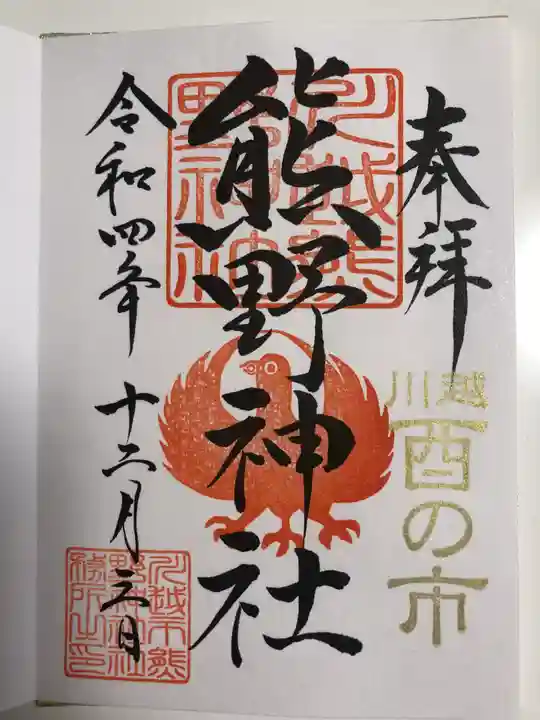 奉拝
川越
酉の市
熊野神社
川越熊
野神社
令和四年 十二月三日
川越市熊
野神社社
務所之印